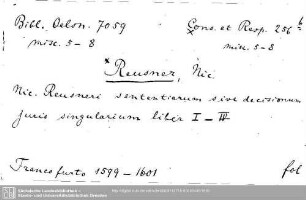 Bibl. Oelsn. 7059
Cons. et Resp. 256 b
misc. 5-8
misc. 5-8
* Reusner, Nic.
Nic. Reusneri sententiarum sive decisionum
juris singularium liber I - IV
Francofurto 1599-1601
fol
Sächsische Landesbibliothek -
Staats- und Universitätsbibliothek Dresden